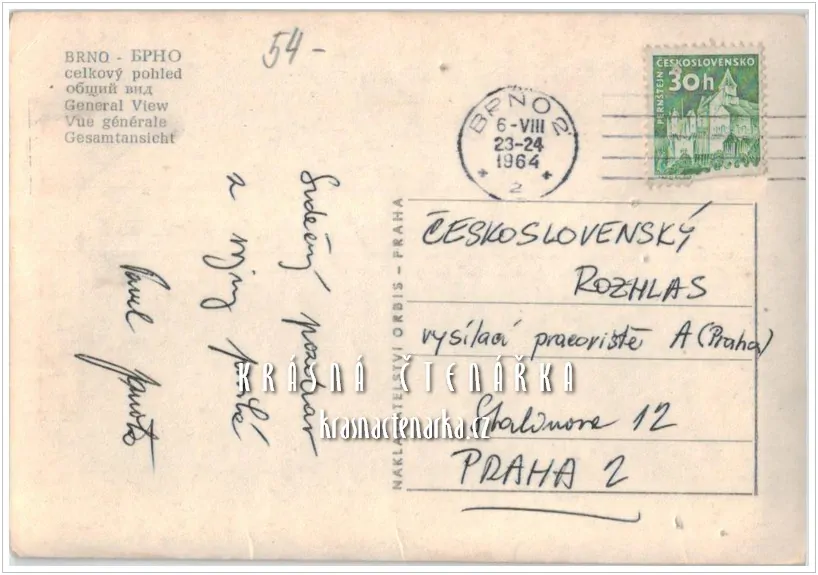 BRNO - БРНО
celkový pohled
общий вид
General View
Vue générale
Gesamtansicht
54-
BRNO 2
6-VIII
23-24
1964
* 2 *
ČESKOSLOVENSKO
30h
PERNŠTEJN
Srdečný pozdrav
z
posílá
Pavel
NAKLADATELSTVÍ ORBIS - PRAHA
ČESKOSLOVENSKÝ
ROZHLAS
vysílací pracoviště A (Praha)
Stalinova 12
PRAHA 2
KRÁSNÁ ČTENÁŘKA
krasnactenarka.cz